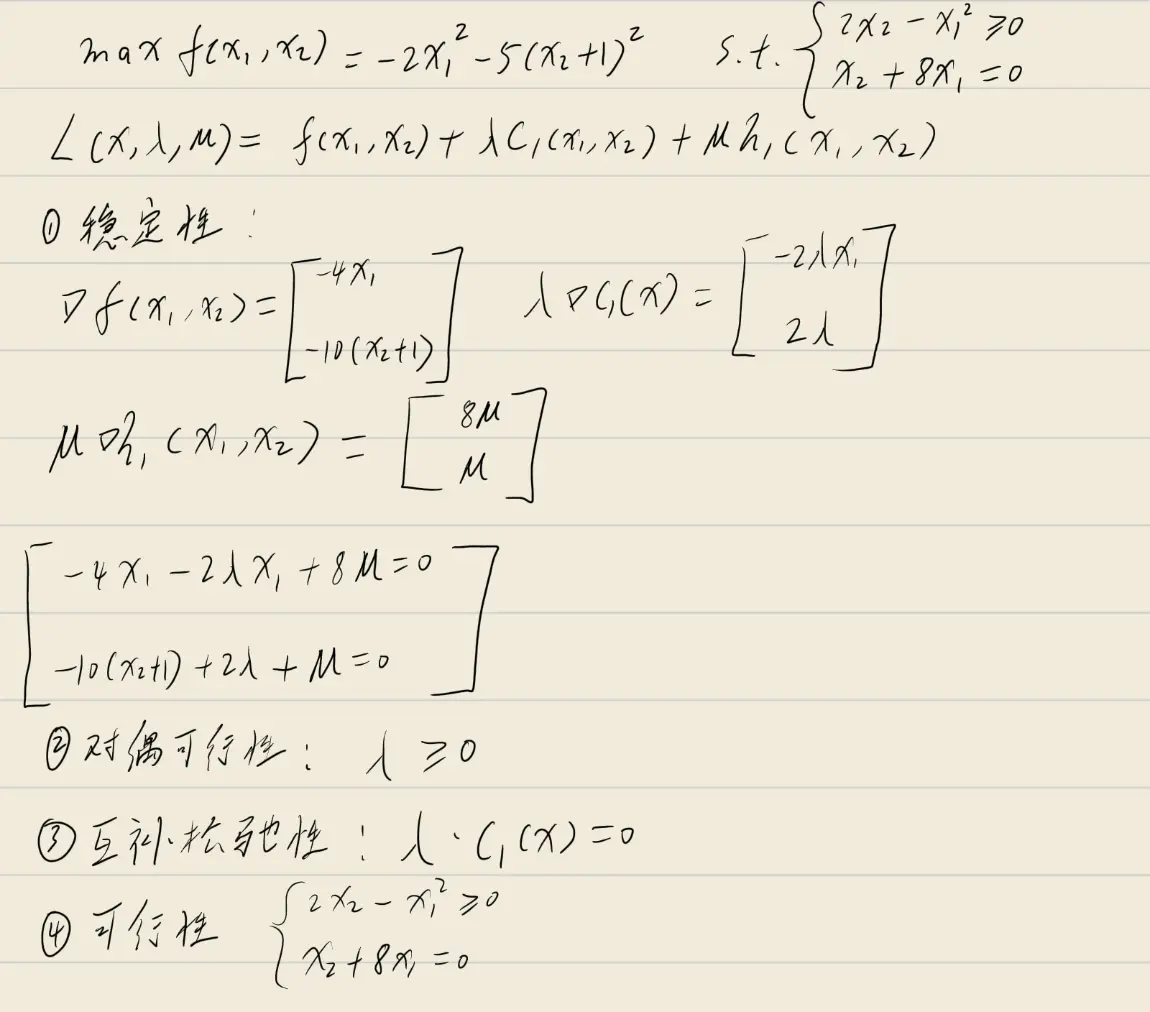 max f(x₁,x₂) = -2x₁² - 5(x₂+1)² s.t. { 2x₂ - x₁² ≥ 0
x₂ + 8x₁ = 0
L(x,λ,μ) = f(x₁,x₂) + λC₁(x₁,x₂) + μh₁(x₁,x₂)
① 稳定性:
∇f(x₁,x₂) = [ -4x₁
-10(x₂+1) ]
λ∇C₁(x) = [ -2λx₁
2λ ]
μ∇h₁(x₁,x₂) = [ 8μ
μ ]
[ -4x₁ - 2λx₁ + 8μ = 0
-10(x₂+1) + 2λ + μ = 0 ]
② 对偶可行性: λ ≥ 0
③ 互补松弛性: λ·C₁(x) = 0
④ 可行性 { 2x₂ - x₁² ≥ 0
x₂ + 8x₁ = 0